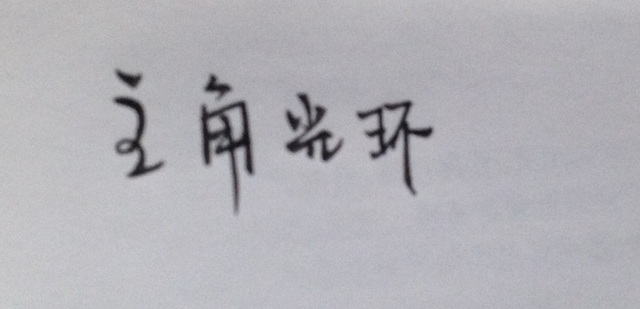 主角光环